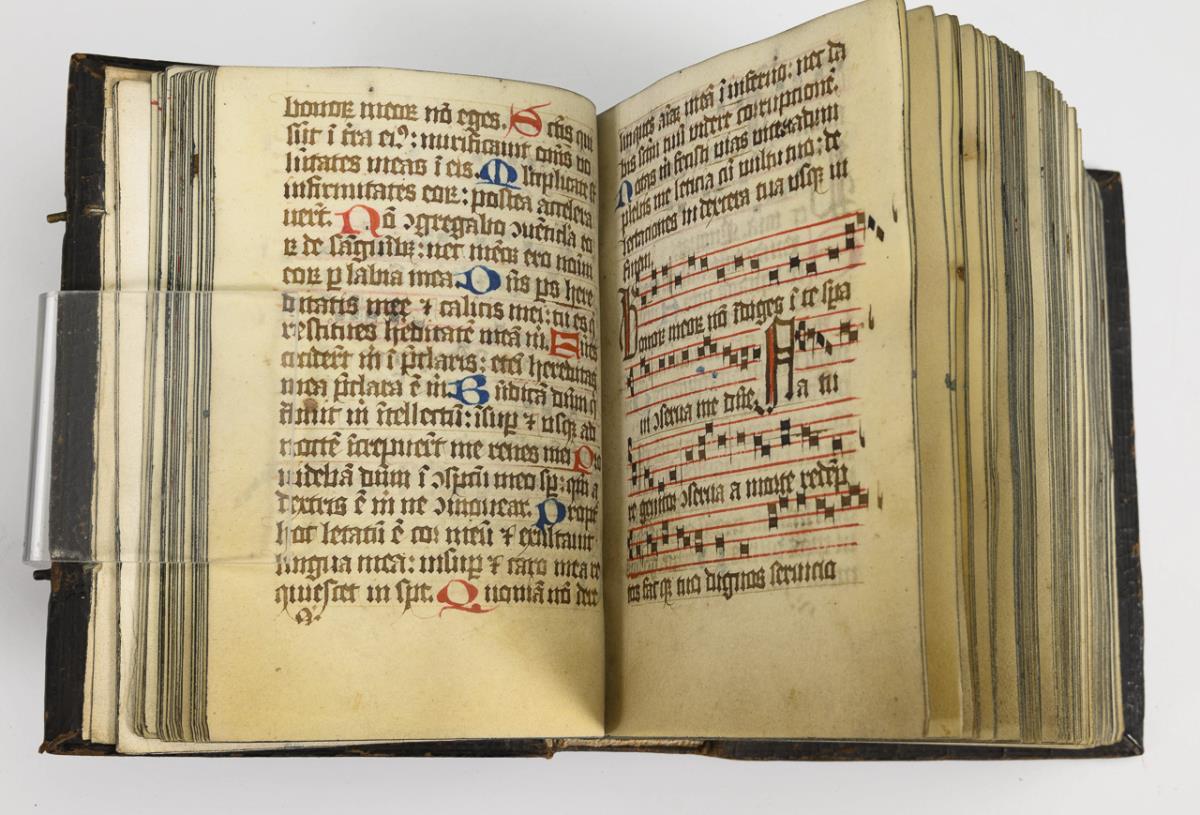 bonoꝝ meoꝝ nō eges. Sctis qui
sūt ī tr̄a eiꝰ: mirificauit om̄s uo
lūtates meas ī eis. Mltiplicate st̄
infirmitates eoꝝ: postea accelera
uer̄t. Nō ↄgregabo ↄuēticla eo
ꝝ de sāguībꝫ: nec mēor ero noīm
eoꝝ ꝑ labia mea. Dn̄s ps here
ditatis mee ⁊ calicis mei: tu es q
restitues heditatē meā m̄. Funes
cecider̄t m̄ ī p̄claris: eteī hereditas
mea p̄clara ē m̄. Bn̄dicā dūm q
t̄buit m̄ ītellectū: īsuꝑ ⁊ usqꝫ ad
noctē īcrepuer̄t me renes mei Pro
uidebā dūm ī ↄspcū meo sꝑ: qm̄ a
dextris ē m̄ ne ↄmouear. Propt̄
hoc letatū ē cor meū ⁊ exultauit
lingua mea: insuꝑ ⁊ caro mea re
quiescet in spe. Quoniā nō dere
linques aīaꝫ meā ī inferno: nec da
bis scm̄ tuū videre corruptionē.
Notas m̄ fecisti vias vite: adim
plebis me leticia cū vultu tuo: de
lectationes in dextera tua usqꝫ in
Bonoꝝ meoꝝ nō īdiges ī te spa
ui ↄserua me dn̄e. Fa ui
re genitos ↄserua a morte redēp
tos fac qꝫ tuo dignos seruicio